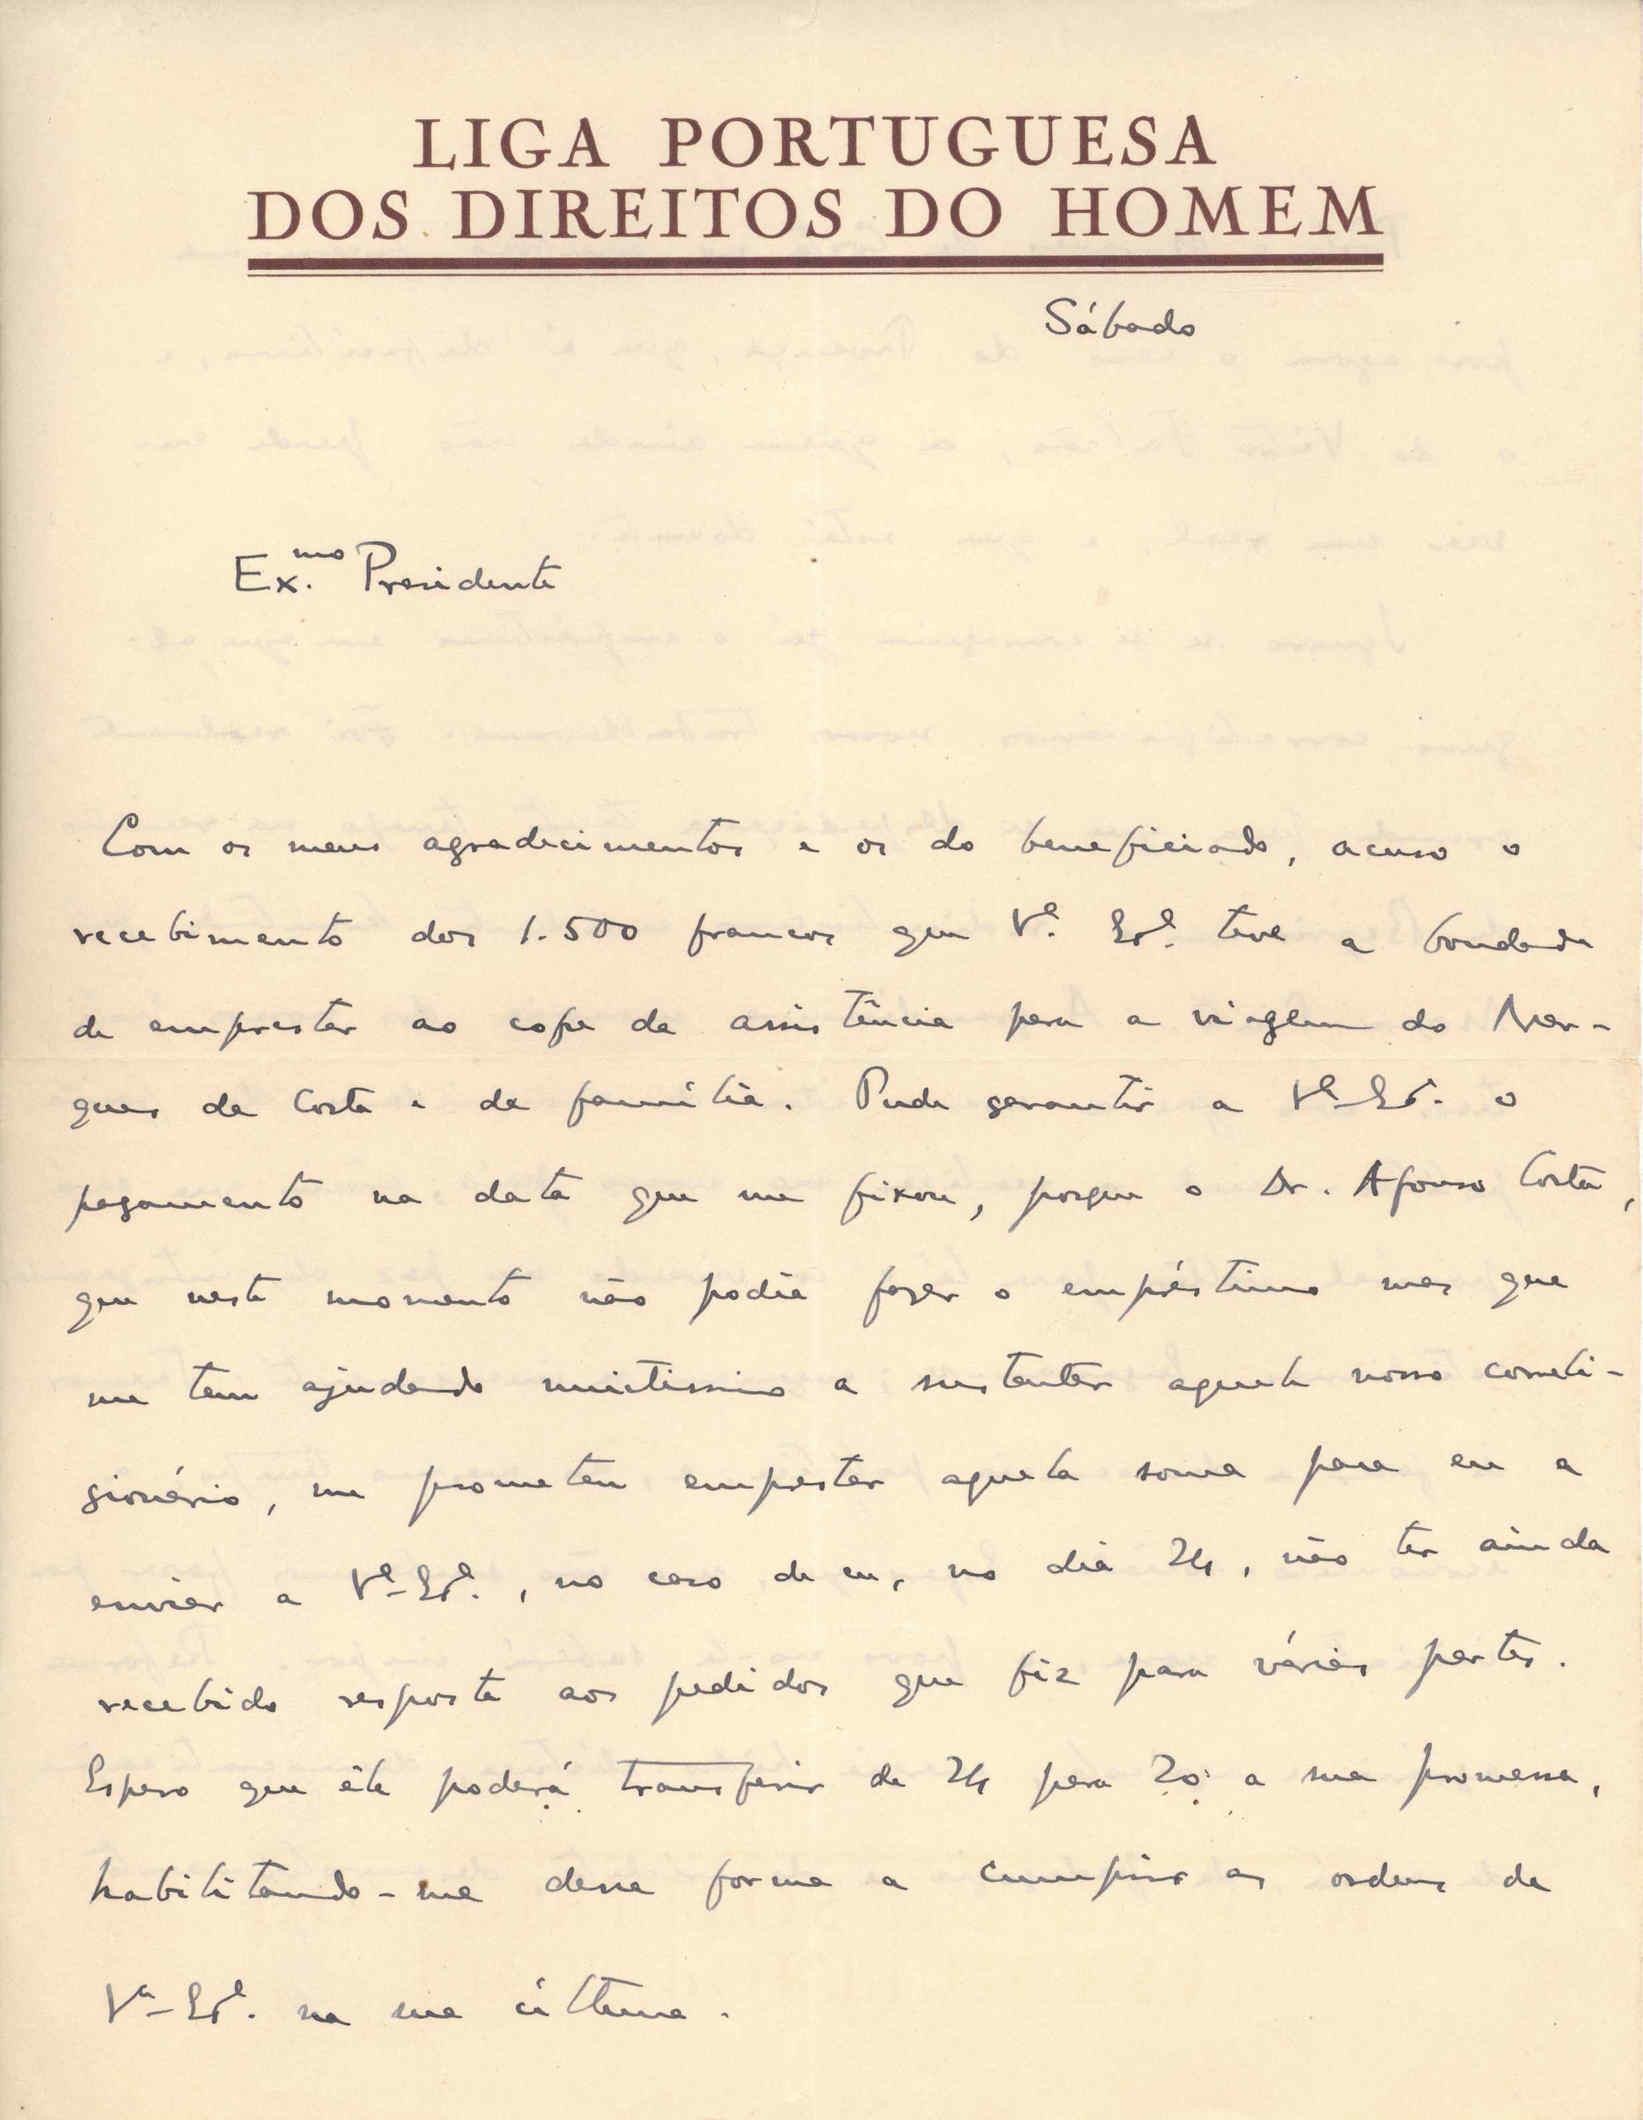 LIGA PORTUGUESA
DOS DIREITOS DO HOMEM
Sábado
Ex.mo Presidente
Com os meus agradecimentos e os do beneficiado, acuso o
recebimento dos 1.500 francos que V.ª Ex.ª teve a bondade
de emprestar ao cofre da assistência para a viagem do Mar-
ques da Costa e da família. Pude garantir a V.ª Ex.ª o
pagamento na data que me fixou, porque o Dr. Afonso Costa,
que neste momento não podia fazer o empréstimo mas que
me tem ajudando muitissimo a sustentar aquele nosso correli-
gionário, me prometeu emprestar aquela soma para eu a
enviar a V.ª Ex.ª, no caso de eu, no dia 24, não ter ainda
recebido resposta aos pedidos que fiz para várias partes.
Espero que êle poderá transferir de 24 para 20 a sua promessa,
habilitando-me dessa forma a cumprir as ordens de
V.ª Ex.ª na sua última.